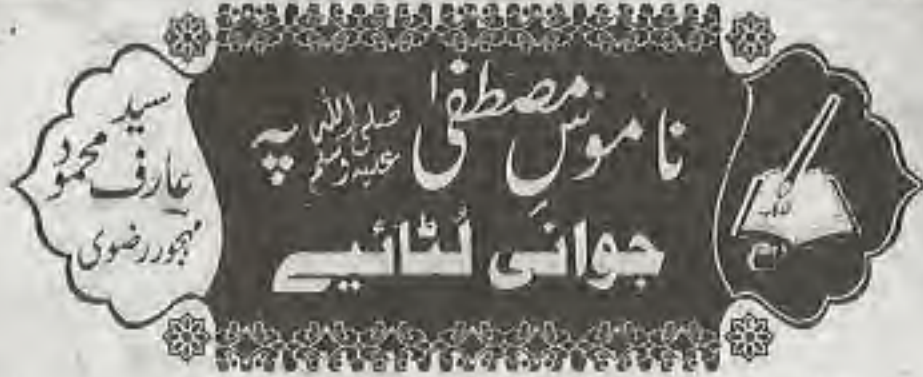 ناموسِ مصطفیٰ صلی اللہ علیہ وسلم پہ
جوانی لُٹائیے
سید
عارف محمود
مہجور رضوی